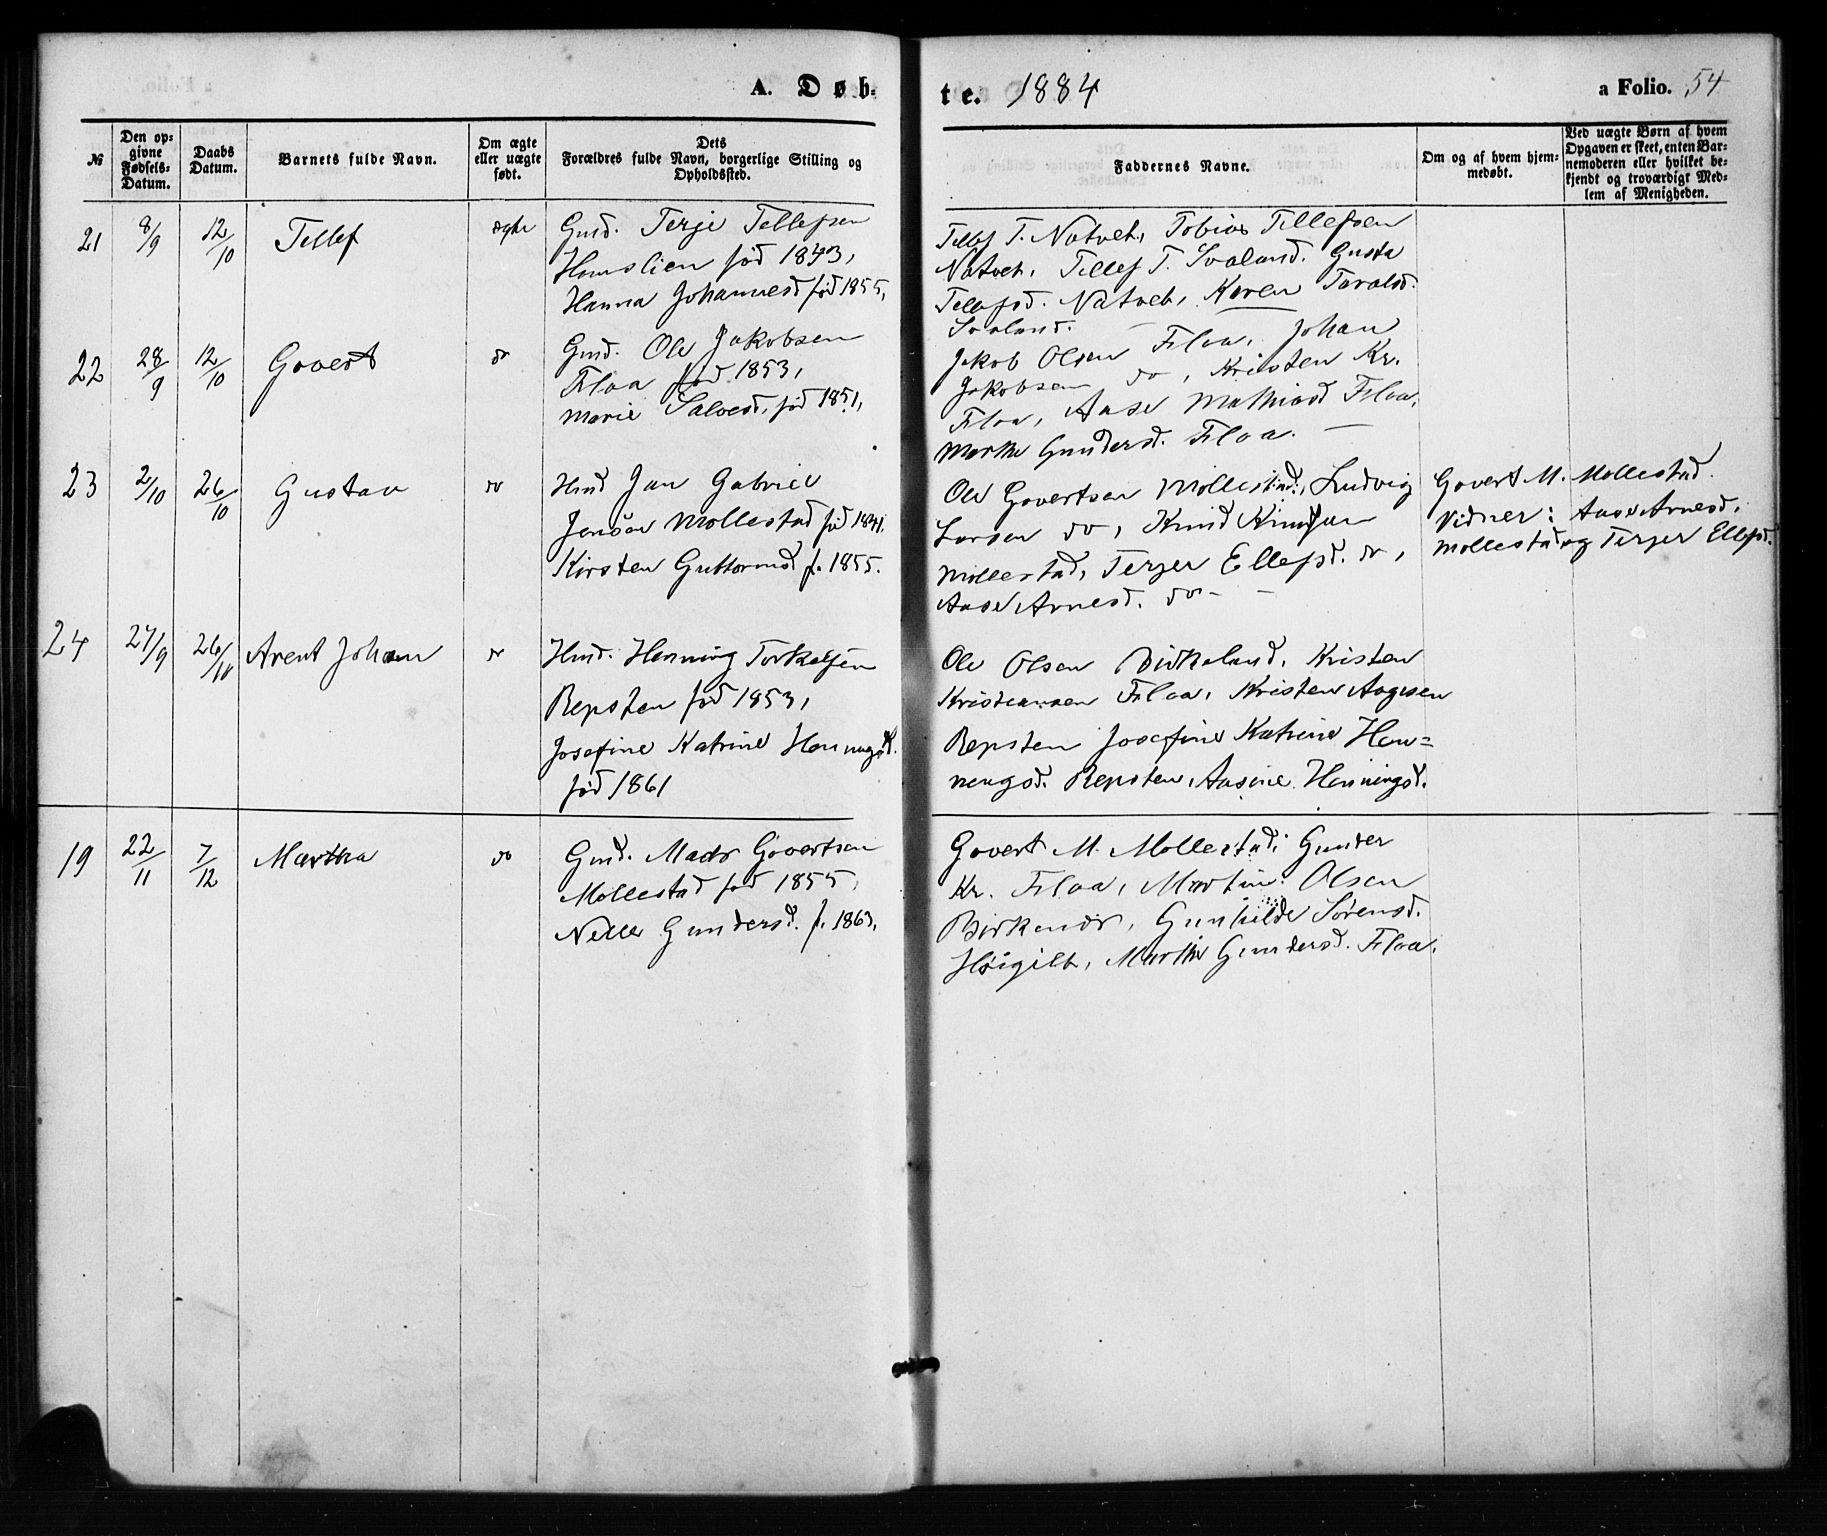 A. Døb-
te. 1884
a Folio. 54
№
Den op-
givne
Fødsels-
Datum.
Daabs
Datum.
Barnets fulde Navn.
Om ægte
eller uægte
født.
Dets
Forældres fulde Navn, borgerlige Stilling og
Opholdssted.
Faddernes Navne.
Om og af hvem hjem-
medøbt.
Ved uægte Børn af hvem
Opgaven er skeet, enten Bar-
nemoderen eller hvilket be-
kjendt og troværdigt Med-
lem af Menigheden.
21 8/9 12/10 Tellef ægte
Gmd. Terje Tellefsen
Homslien fød 1843,
Hanna Johannesd fød 1855,
Tellef T. Natvet, Tobias Tellefsen
Natvet, Tellef T. Svaland. Gusta
Tellefsd. Natvet, Karen Taralsd.
Svaland. —
22 28/9 12/10 Govert do
Gmd. Ole Jakobsen
Floa fød 1853,
Marie Salvesd, fød 1851,
Jakob Olsen Floa, Johan
Jakobsen do, Kristen Kr.
Floa, Aase Mathiasd Floa,
Marthe Gundersd. Floa. —
23 2/10 26/10 Gustav do
Hmd Jan Gabriel
Jensen Mollestad fød 1841.
Kirsten Guttormsd f. 1855.
Ole Govertsen Mollestad, Ludvig
Larsen do, Knud Knudsen
Mollestad, Terjer Ellefsd. do,
Aase Arnesd. do — —
Govert M. Mollestad
Vidner: Aase Arnesd.
Mollestad og Terjer Ellefsd.
24 27/9 26/10 Arent Johan do
Hmd. Henning Torkelsen
Repsten fød 1853,
Josefine Katrine Henningsd.
fød 1861
Ole Olsen Birkeland, Kristen
Kristiansen Floa, Kristen Aagesen
Repsten Josefine Katrine Hen=
ningsd. Repsten, Aasine Henningsd.
19 22/11 7/12 Martha do
Gmd. Mads Govertsen
Mollestad fød 1855,
Nille Gundersd. f. 1863,
Govert M. Mollestad, Gunder
Kr. Floa, Martin Olsen
Birkenes, Gunhilde Sørensd.
Høigilt, Marthe Gundersd. Floa.